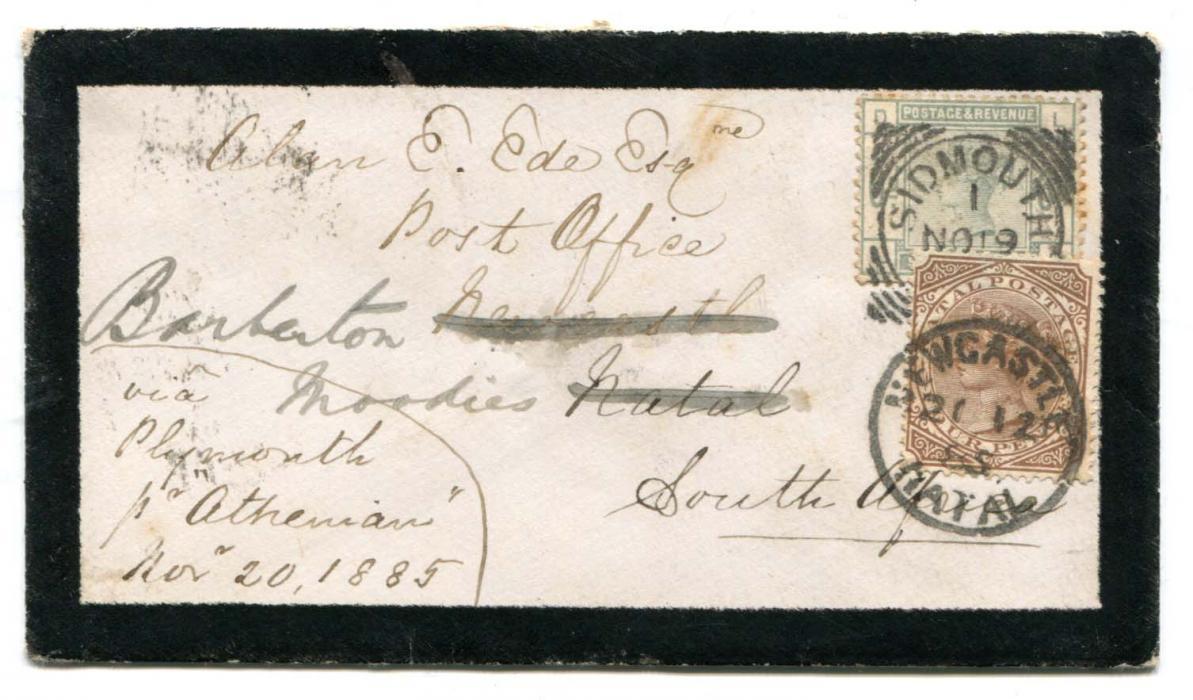 Alan E. Ede Esqre
Post Office
Barberton Newcastle
via Moodies Natal
Plymouth
South Africa
pr "Athenian"
Novr 20, 1885
D POSTAGE & REVENUE L
SIDMOUTH
1
NO 19
NATAL POSTAGE
FOUR PENCE
NEWCASTLE
21 12
85
NATAL